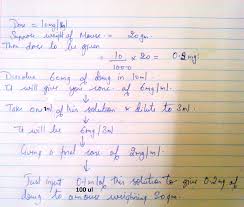 Dose = 10mg/
Suppose weight of Mouse = 20gm.
Then dose to be given
= 10/1000 × 20 = 0.2mg.
Dissolve 60mg of drug in 10ml.
It will give you conc. of 6mg/ml.
Take 1ml of this solution & dilute to 3ml.
It will be 6mg/3ml
Giving a final conc of 2mg/ml.
Just inject 0.1ml of this solution to give 0.2mg of
100 ul
drug to a mouse weighing 20gm.